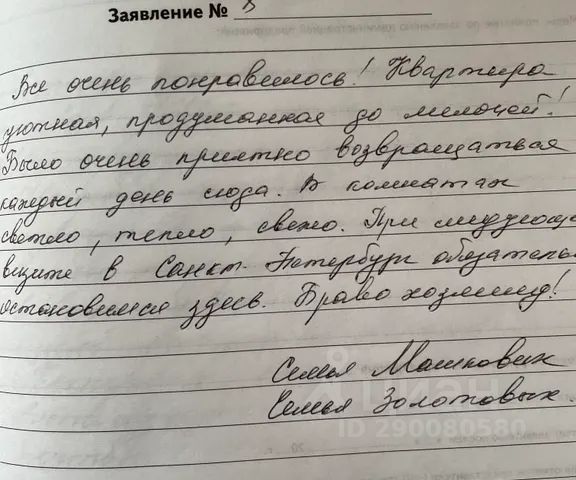 Заявление № 8
Все очень понравилось! Квартира
уютная, продуманная до мелочей!
Было очень приятно возвращаться
каждый день сюда. В комнатах
светло, тепло, свежо. При следующе
визите в Санкт-Петербург обязательн
остановимся здесь. Браво хозяину!
Семья Машковых
Семья Золотовых
циан
ID 290080580